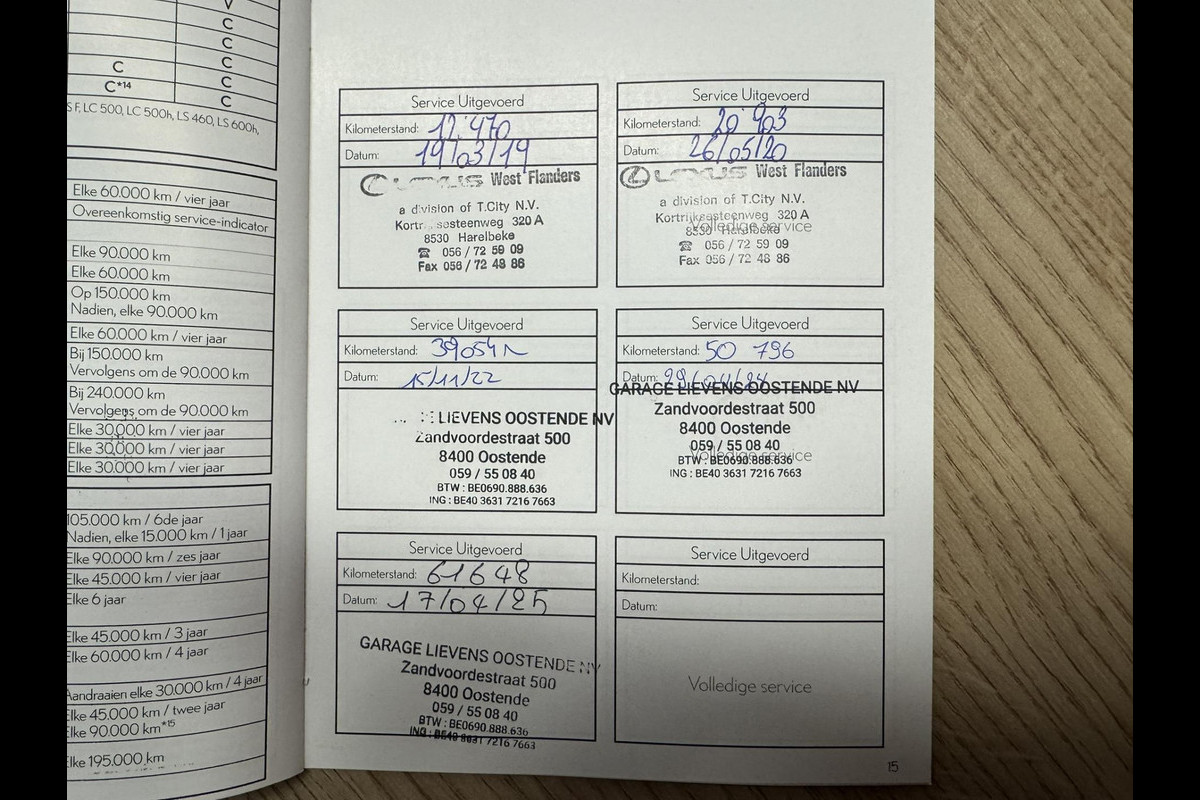 V
C
C
C
C C
C*14 C
C
S F, LC 500, LC 500h, LS 460, LS 600h,
Elke 60.000 km / vier jaar
Overeenkomstig service-indicator
Elke 90.000 km
Elke 60.000 km
Op 150.000 km
Nadien, elke 90.000 km
Elke 60.000 km / vier jaar
Bij 150.000 km
Vervolgens om de 90.000 km
Bij 240.000 km
Vervolgens om de 90.000 km
Elke 30.000 km / vier jaar
Elke 30.000 km / vier jaar
Elke 30.000 km / vier jaar
105.000 km / 6de jaar
Nadien, elke 15.000 km / 1 jaar
Elke 90.000 km / zes jaar
Elke 45.000 km / vier jaar
Elke 6 jaar
Elke 45.000 km / 3 jaar
Elke 60.000 km / 4 jaar
Aandraaien elke 30.000 km / 4 jaar
Elke 45.000 km / twee jaar
Elke 90.000 km*15
Elke 195.000 km
Service Uitgevoerd
Kilometerstand: 12.470
Datum: 19/03/19
LEXUS West Flanders
a division of T.City N.V.
320 A
8530 Harelbeke
☎ 056 / 72 59 09
Fax 056 / 72 48 86
Service Uitgevoerd
Kilometerstand: 20 903
Datum: 26/05/20
LEXUS West Flanders
a division of T.City N.V.
Kortrijksesteenweg 320 A
8530 Harelbeke
Volledige service
☎ 056 / 72 59 09
Fax 056 / 72 48 86
Service Uitgevoerd
Kilometerstand: 39054
Datum: 15/11/22
LIEVENS OOSTENDE NV
Zandvoordestraat 500
8400 Oostende
059 / 55 08 40
BTW : BE0690.888.636
ING : BE40 3631 7216 7663
Service Uitgevoerd
Kilometerstand: 50 796
Datum: 29/04/24
GARAGE LIEVENS OOSTENDE NV
Zandvoordestraat 500
8400 Oostende
059 / 55 08 40
Volledige service
BTW : BE0690.888.636
ING : BE40 3631 7216 7663
Service Uitgevoerd
Kilometerstand: 61648
Datum: 17/04/25
GARAGE LIEVENS OOSTENDE NV
Zandvoordestraat 500
8400 Oostende
059 / 55 08 40
BTW : BE0690.888.636
ING : BE40 3631 7216 7663
Service Uitgevoerd
Kilometerstand:
Datum:
Volledige service
15